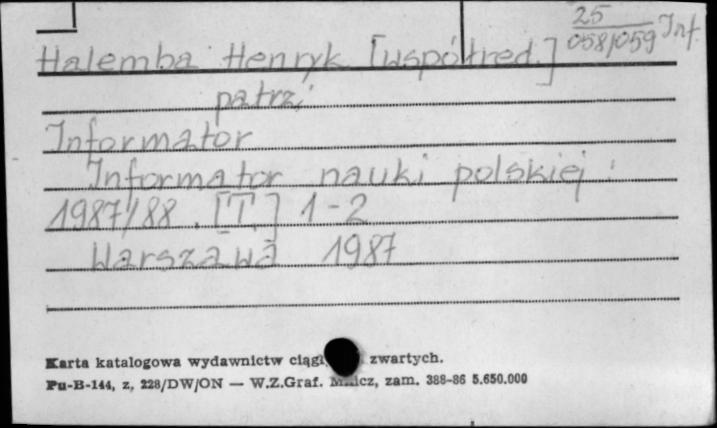 25
058/059 Inf.
Halemba Henryk [współred.]
patrz:
Informator
Informator nauki polskiej :
1987/88 . [T.] 1-2
Warszawa 1987
Karta katalogowa wydawnictw zwartych.
Pu-B-144, z, 228/DW/ON — W.Z.Graf. zam. 388-86 5.650.000